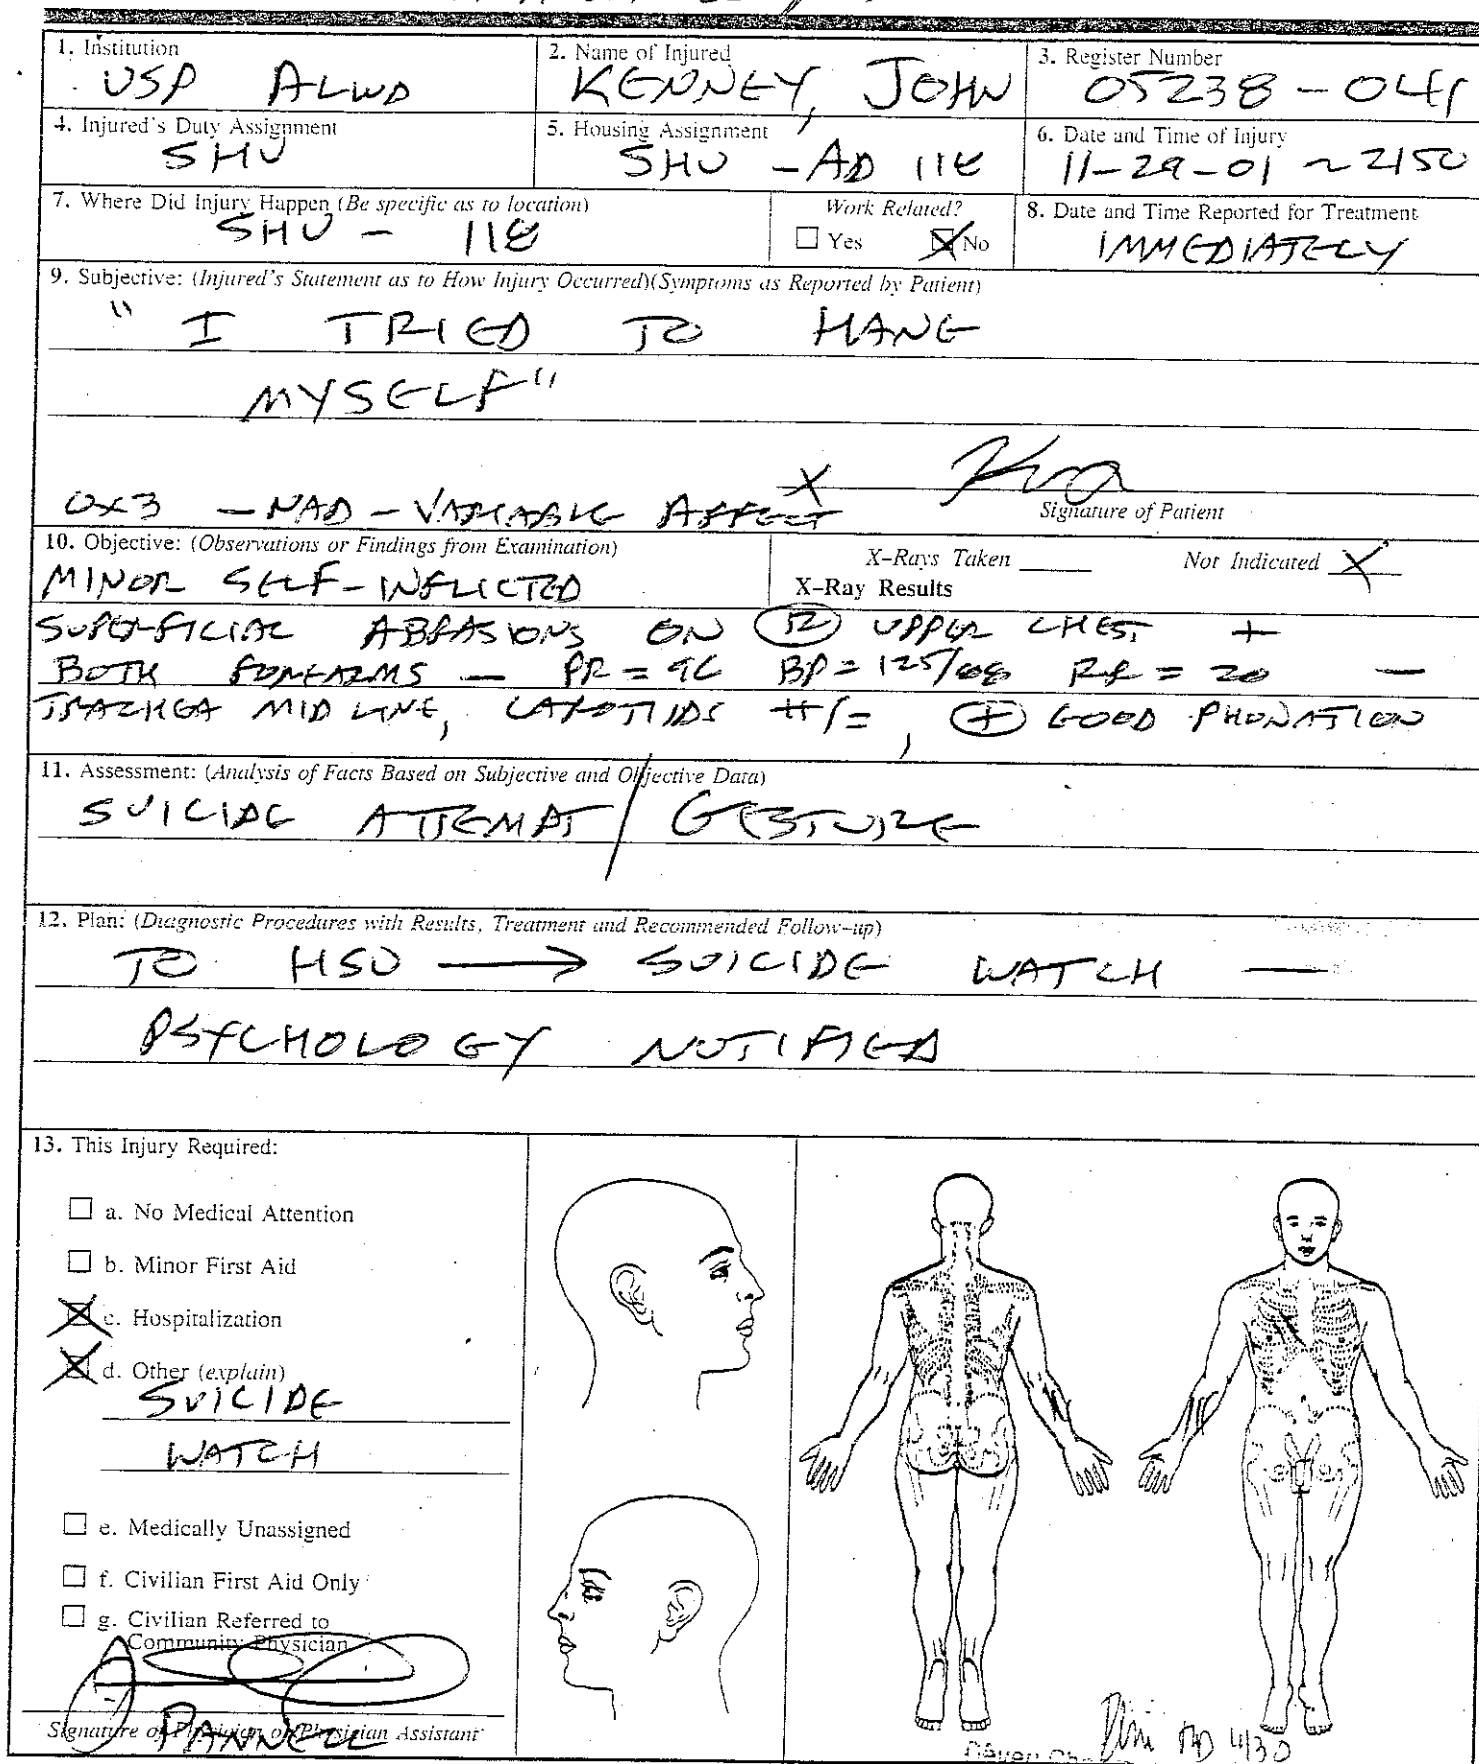 1. Institution
USP ALWD
2. Name of Injured
KENNEY, JOHN
3. Register Number
05238-041
4. Injured's Duty Assignment
SHU
5. Housing Assignment
SHU - AD 118
6. Date and Time of Injury
11-29-01 ~2150
7. Where Did Injury Happen (Be specific as to location)
SHU - 118
Work Related?
Yes No
8. Date and Time Reported for Treatment
IMMEDIATELY
9. Subjective: (Injured's Statement as to How Injury Occurred)(Symptoms as Reported by Patient)
" I TRIED TO HANG
MYSELF"
X
Signature of Patient
OX3 - NAD - VARIABLE AFFECT
10. Objective: (Observations or Findings from Examination)
X-Rays Taken Not Indicated X
X-Ray Results
MINOR SELF-INFLICTED
SUPERFICIAL ABRASIONS ON R UPPER CHEST +
BOTH FOREARMS - PR = 96 BP = 125/68 RR = 20 -
TRACHEA MIDLINE, CAROTIDS #/=, + GOOD PHONATION
11. Assessment: (Analysis of Facts Based on Subjective and Objective Data)
SUICIDE ATTEMPT / GESTURE
12. Plan: (Diagnostic Procedures with Results, Treatment and Recommended Follow-up)
TO HSU → SUICIDE WATCH -
PSYCHOLOGY NOTIFIED
13. This Injury Required:
a. No Medical Attention
b. Minor First Aid
c. Hospitalization
d. Other (explain)
SUICIDE
WATCH
e. Medically Unassigned
f. Civilian First Aid Only
g. Civilian Referred to
Community Physician
PANNELL
Signature of Physician or Physician Assistant